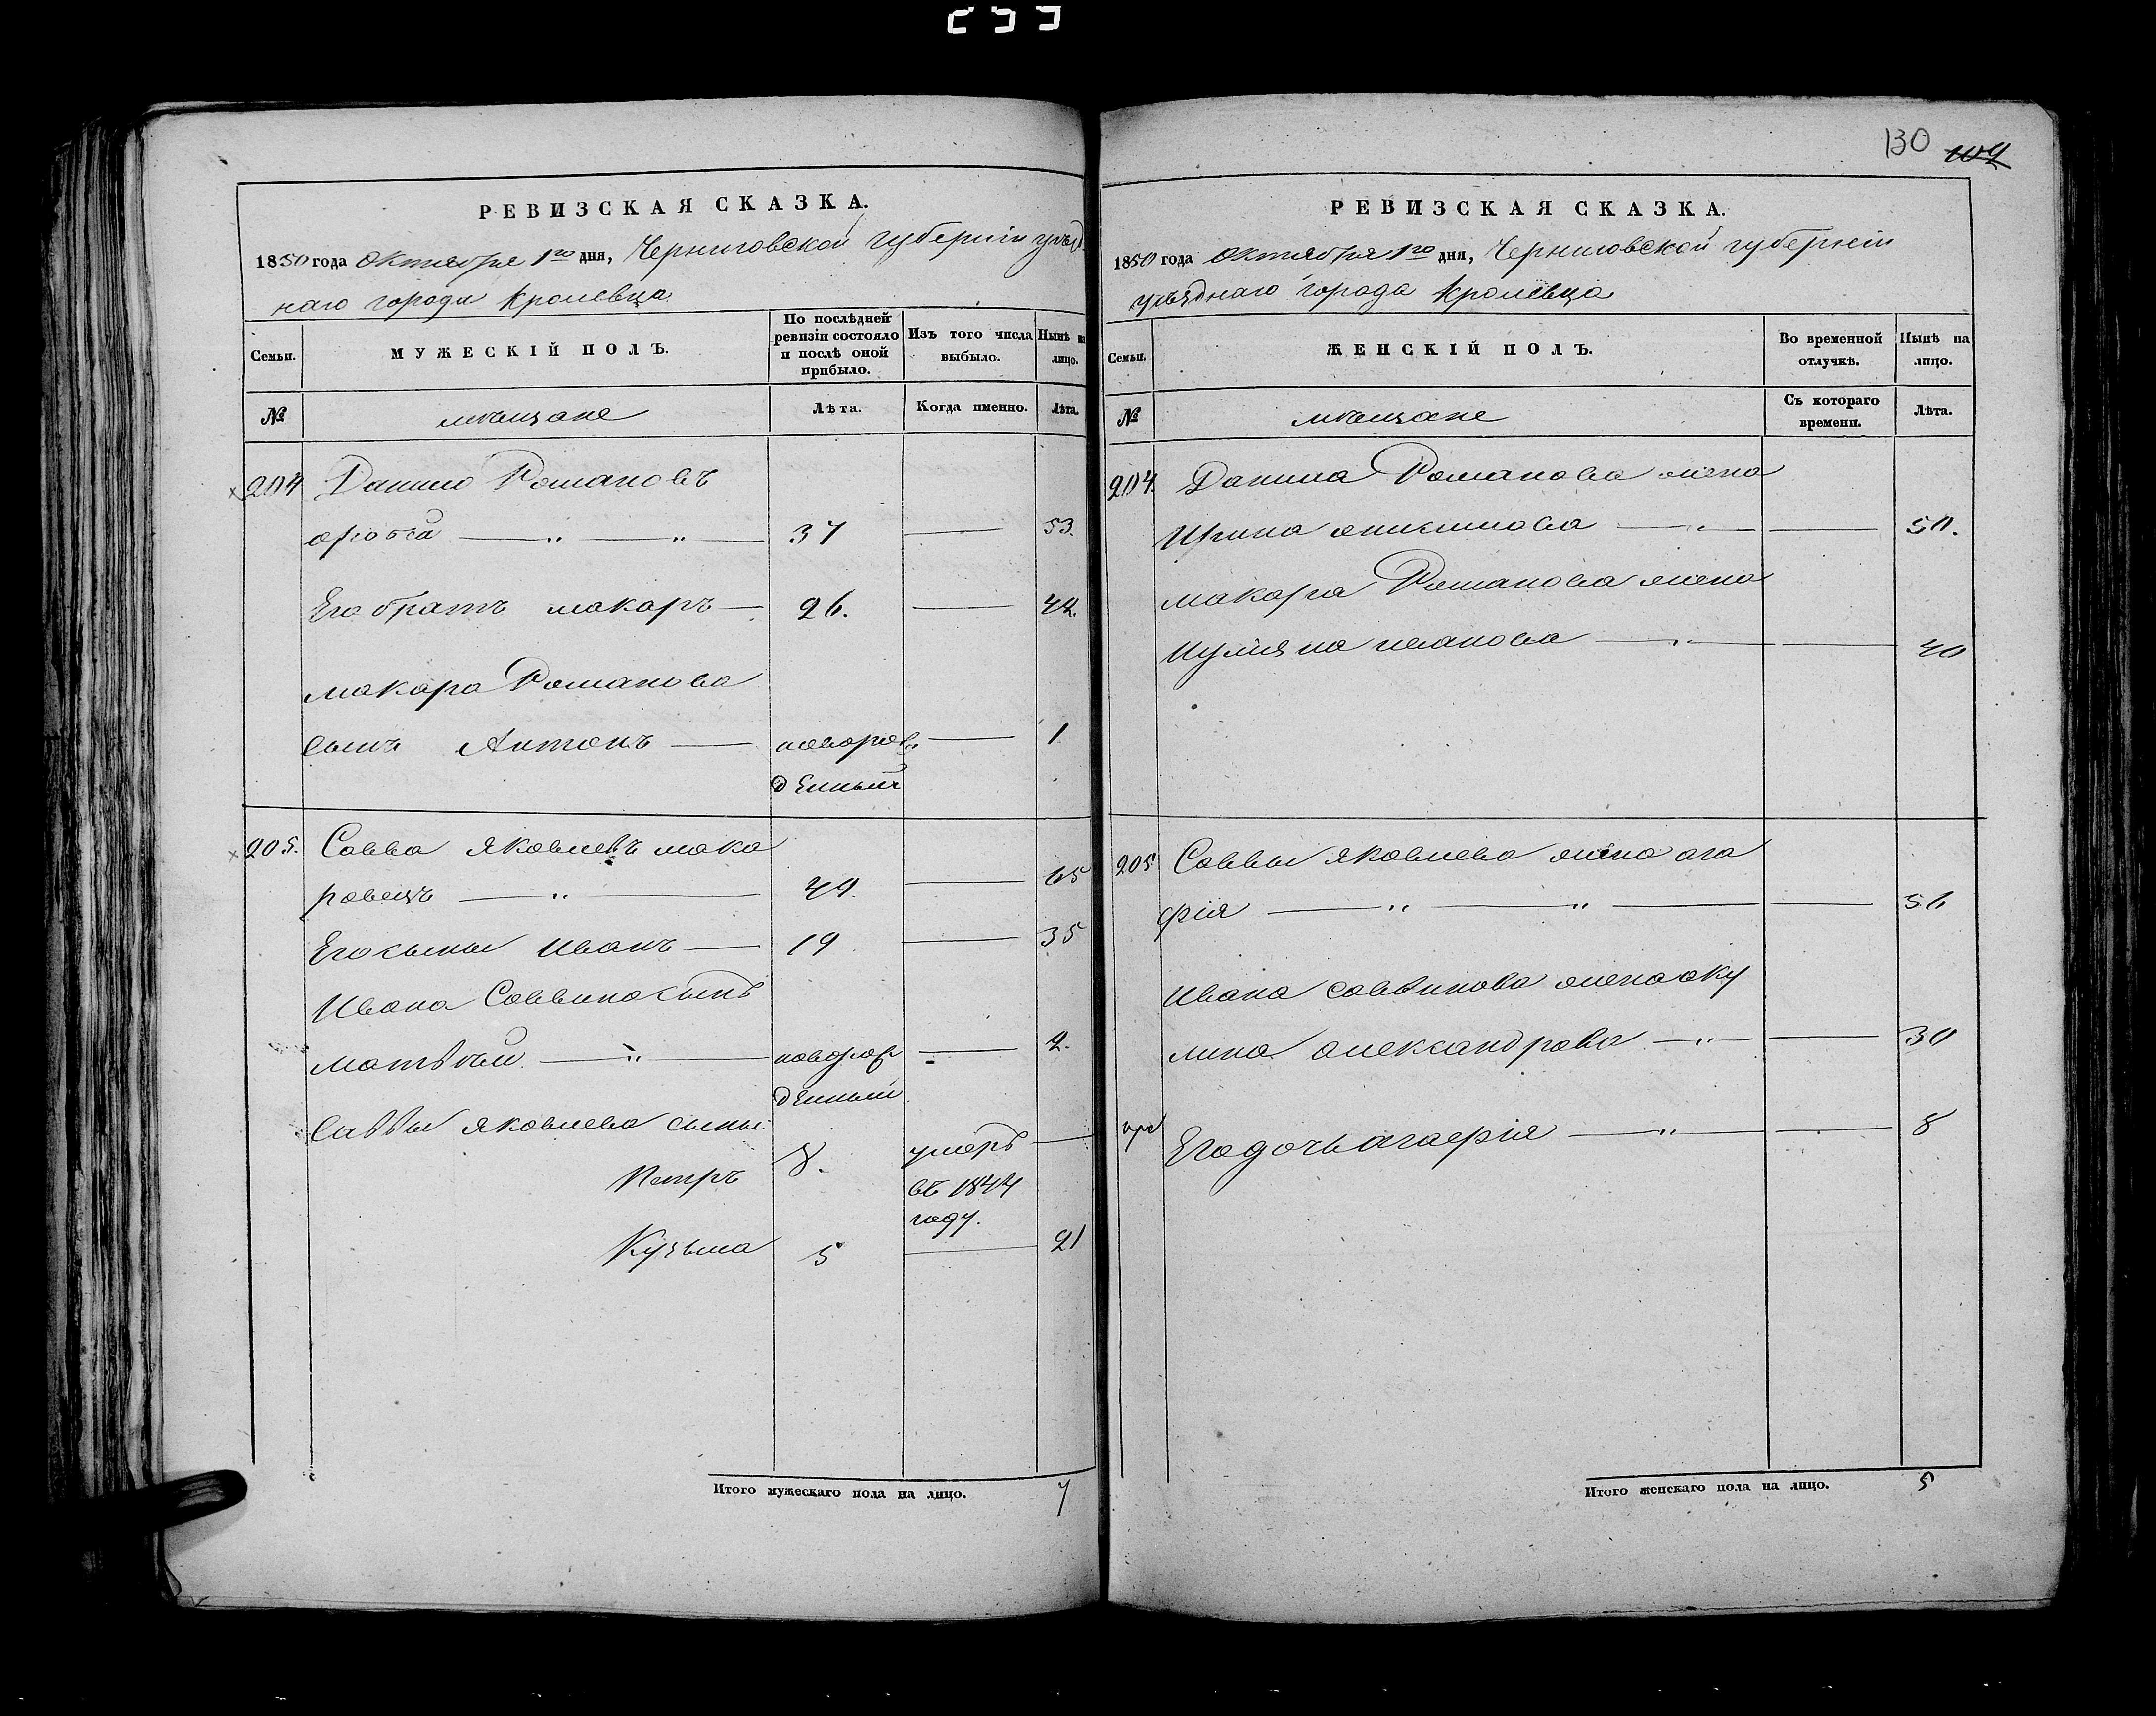 130 109
РЕВИЗСКАЯ СКАЗКА.
1850 года Октября 1го дня, Черниговской губернии уезд
наго города Кролевца
Семьи.
МУЖЕСКІЙ ПОЛЪ.
По послѣдней ревизіи состояло и послѣ оной прибыло.
Изъ того числа выбыло.
Нынѣ на лицо.
№
мѣщане
Лѣта.
Когда именно.
Лѣта.
204 Данило Романовъ
37 53.
Его братъ макаръ 26. 42.
макара Романова
сынъ Антонъ новорож 1
денный
205. Савва Яковлевъ мака
ровецъ 49. 65
Его сыны Иванъ 19 35
Ивана Саввина сынъ
матвѣй новорож 2.
денный
Саввы Яковлева сыны
Петръ 8. умеръ
въ 1844
году.
Кузьма 5 21
Итого мужескаго пола на лицо. 7
РЕВИЗСКАЯ СКАЗКА.
1850 года Октября 1го дня, Черниговской губерніи
уѣзднаго города Кролевца
Семьи.
ЖЕНСКІЙ ПОЛЪ.
Во временной отлучкѣ.
Нынѣ на лицо.
№
мѣщане
Съ котораго времени.
Лѣта.
204. Данила Романова жена
Ирина 50.
макара Романова жена
Иулияна иванова 40
205 Саввы Яковлева жена ага
фія 56
Ивана саввинова жена аку
лина александрова 30
Его дочь агафія 8
Итого женскаго пола на лицо. 5